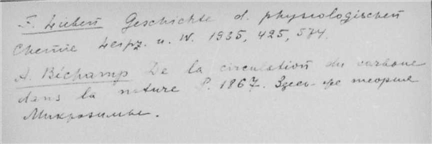 F. Lieben Geschichte d. physiologischen
Chemie Leipz. u. W. 1935, 425, 574.
A. Béchamp De la circulation du carbone
dans la nature P. 1867. Здесь-же теория
Микрозимы.